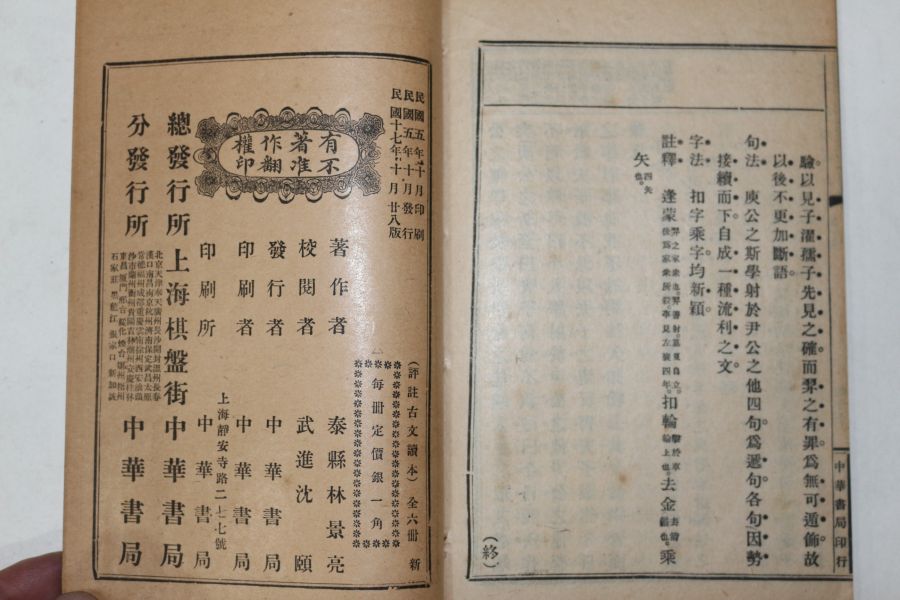 驗以見子濯孺子先見之確而羿之有罪爲無可遁飾故
以後不更加斷語
句法　庾公之斯學射於尹公之他四句爲遞句各句因勢
接續而下自成一種流利之文
字法　扣字乘字均新穎
註釋　逢蒙羿之家衆也羿善射篡夏自立後爲家衆所殺事見左襄四年扣輪輪上也去金乘
矢四矢也
中華書局印行
（終）
民國五年十月印刷
民國五年十月發行
民國十七年十月廿八版
有著作權
不准翻印
（評註古文讀本）全六冊
每冊定價銀一角
著作者　泰縣林景亮
校閱者　武進沈頤
發行者　中華書局
印刷者　中華書局
印刷所　上海靜安寺路二七七號　中華書局
總發行所　上海棋盤街　中華書局
分發行所　中華書局